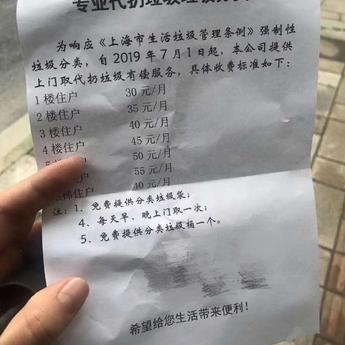 为响应《上海市生活垃圾管理条例》强制性
垃圾分类,自2019年7月1日起,本公司提供
上门取代扔垃圾有偿服务,具体收费标准如下:
1楼住户 30元/月
2楼住户 35元/月
3楼住户 40元/月
4楼住户 45元/月
50元/月
55元/月
梯住户 40元/月
注:1、免费提供分类垃圾袋;
4、每天早、晚上门取一次;
5、免费提供分类垃圾桶一个。
希望给您生活带来便利!